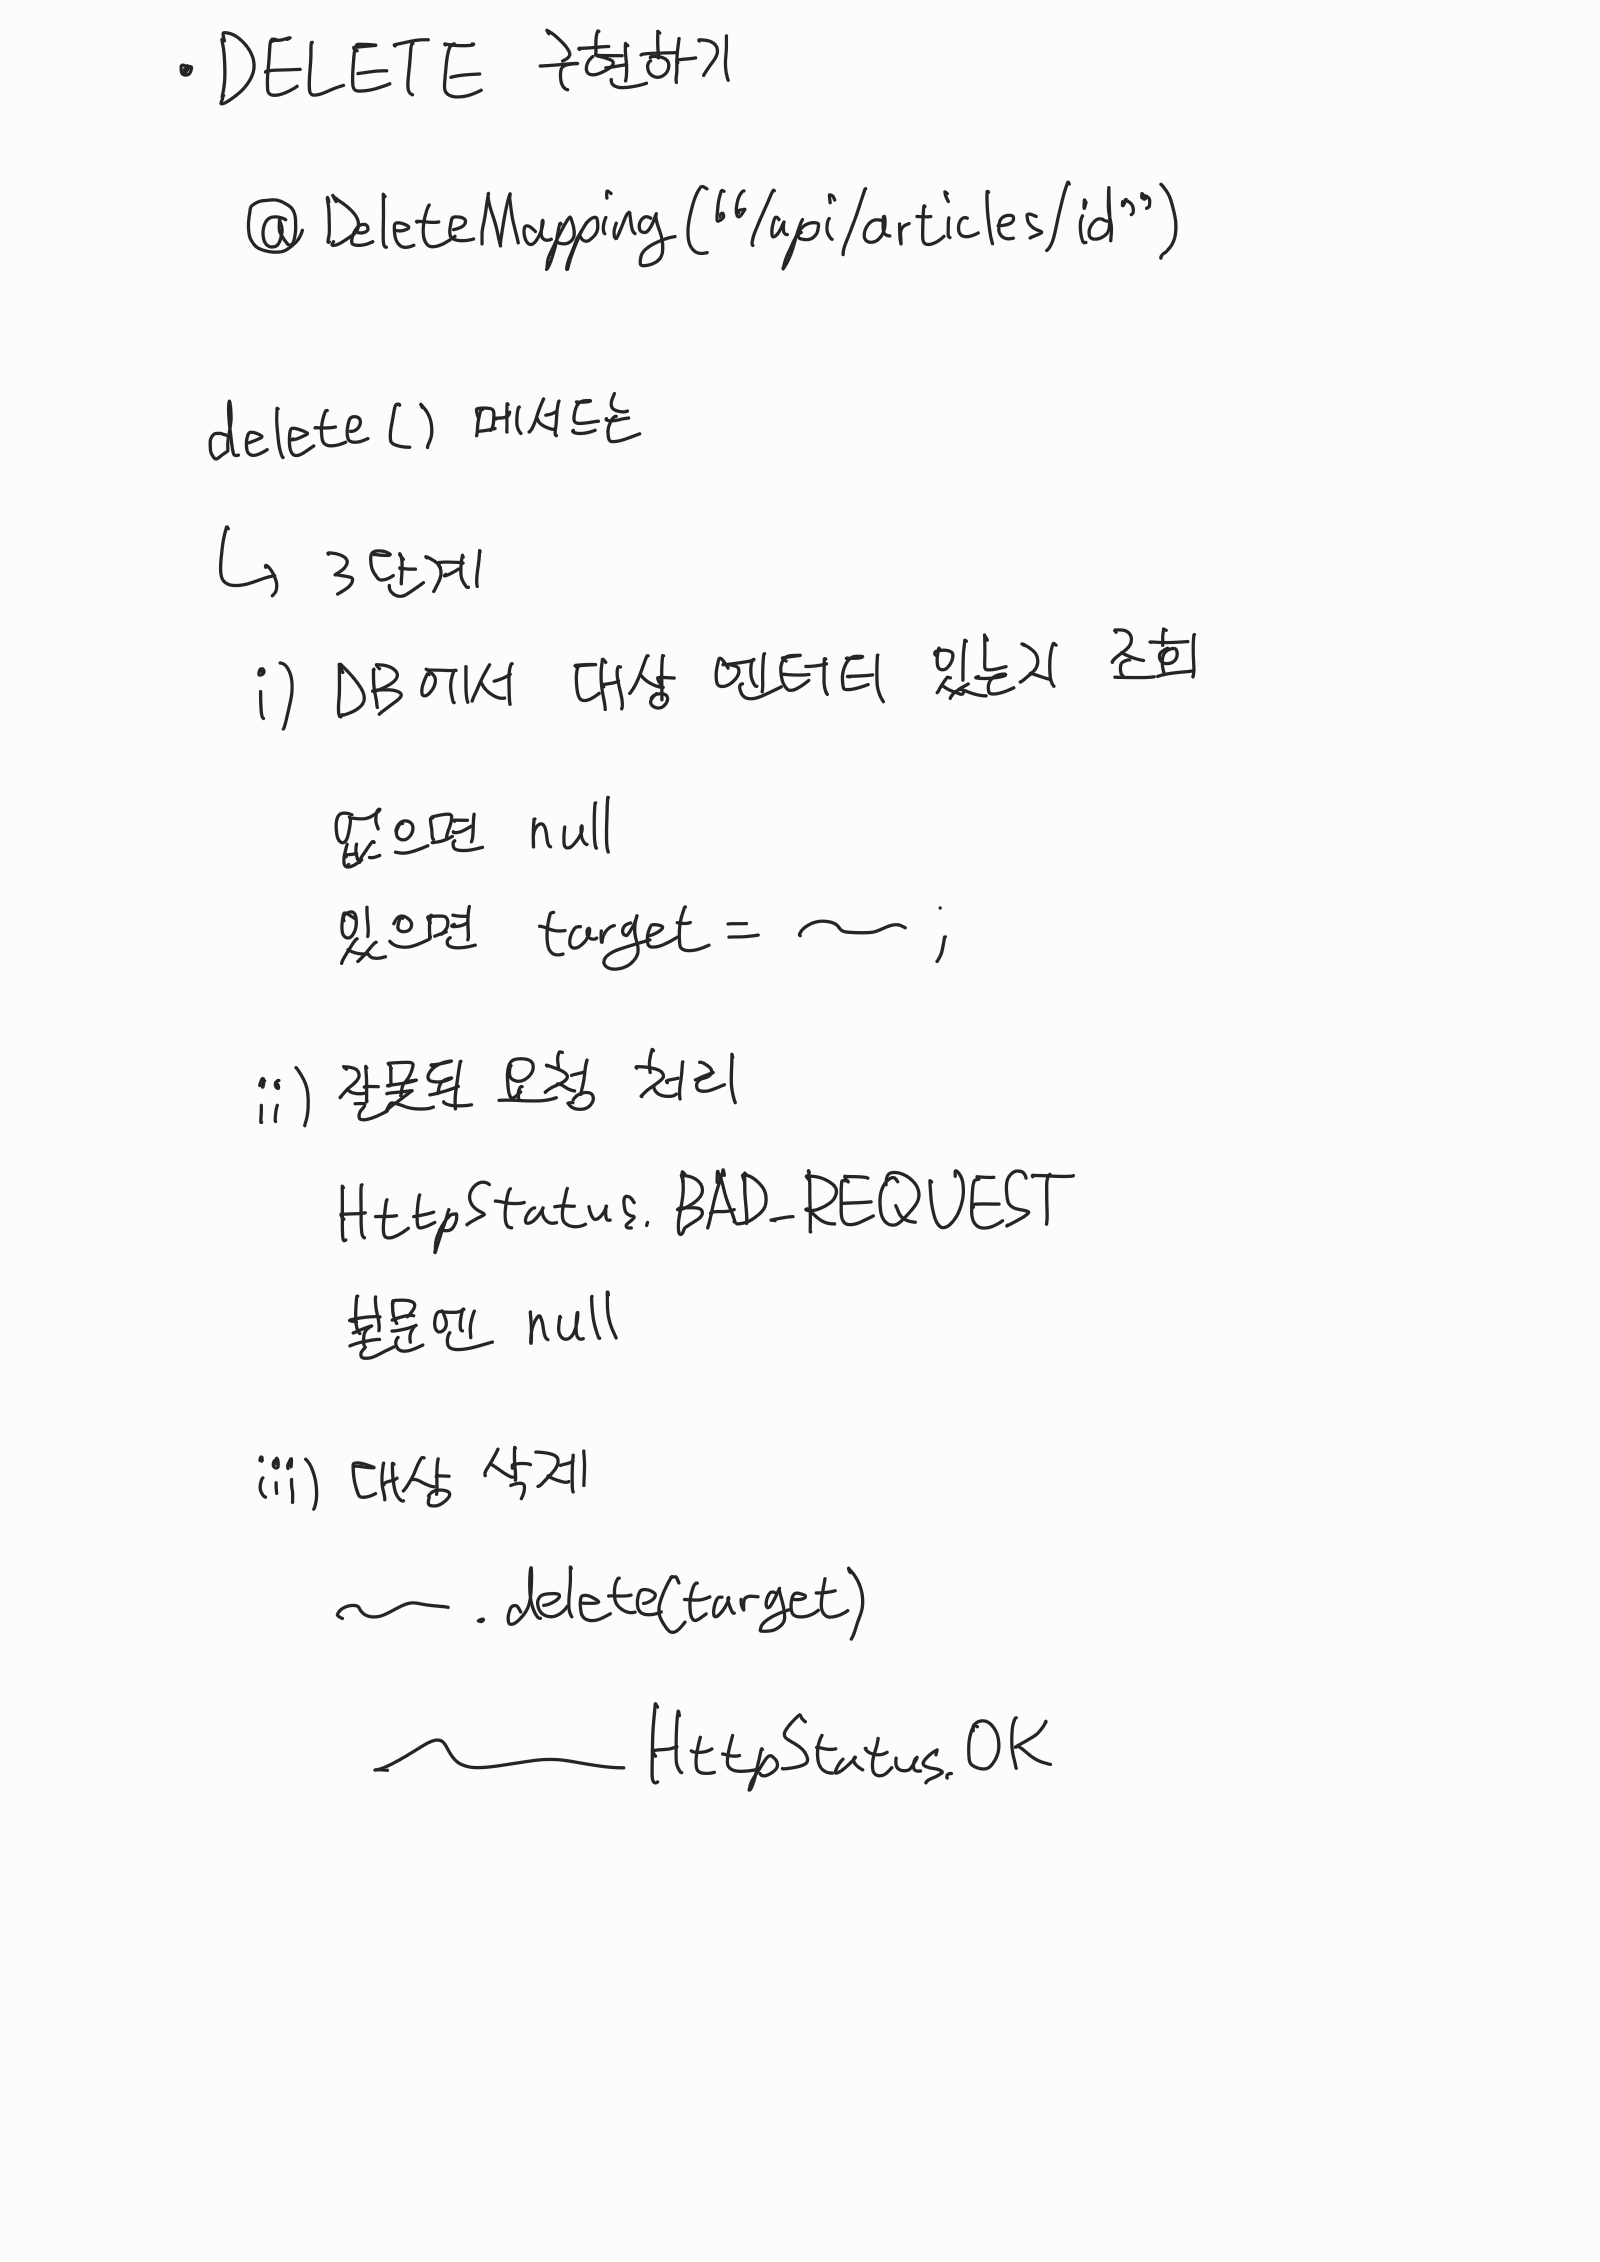 • DELETE 구현하기
@DeleteMapping(“/api/articles/id”)
delete() 메서드는
↳ 3단계
i) DB에서 대상 엔터티 있는지 조회
없으면 null
있으면 target = ~ ;
ii) 잘못된 요청 처리
HttpStatus. BAD_REQUEST
본문엔 null
iii) 대상 삭제
~ . delete(target)
~ HttpStatus. OK